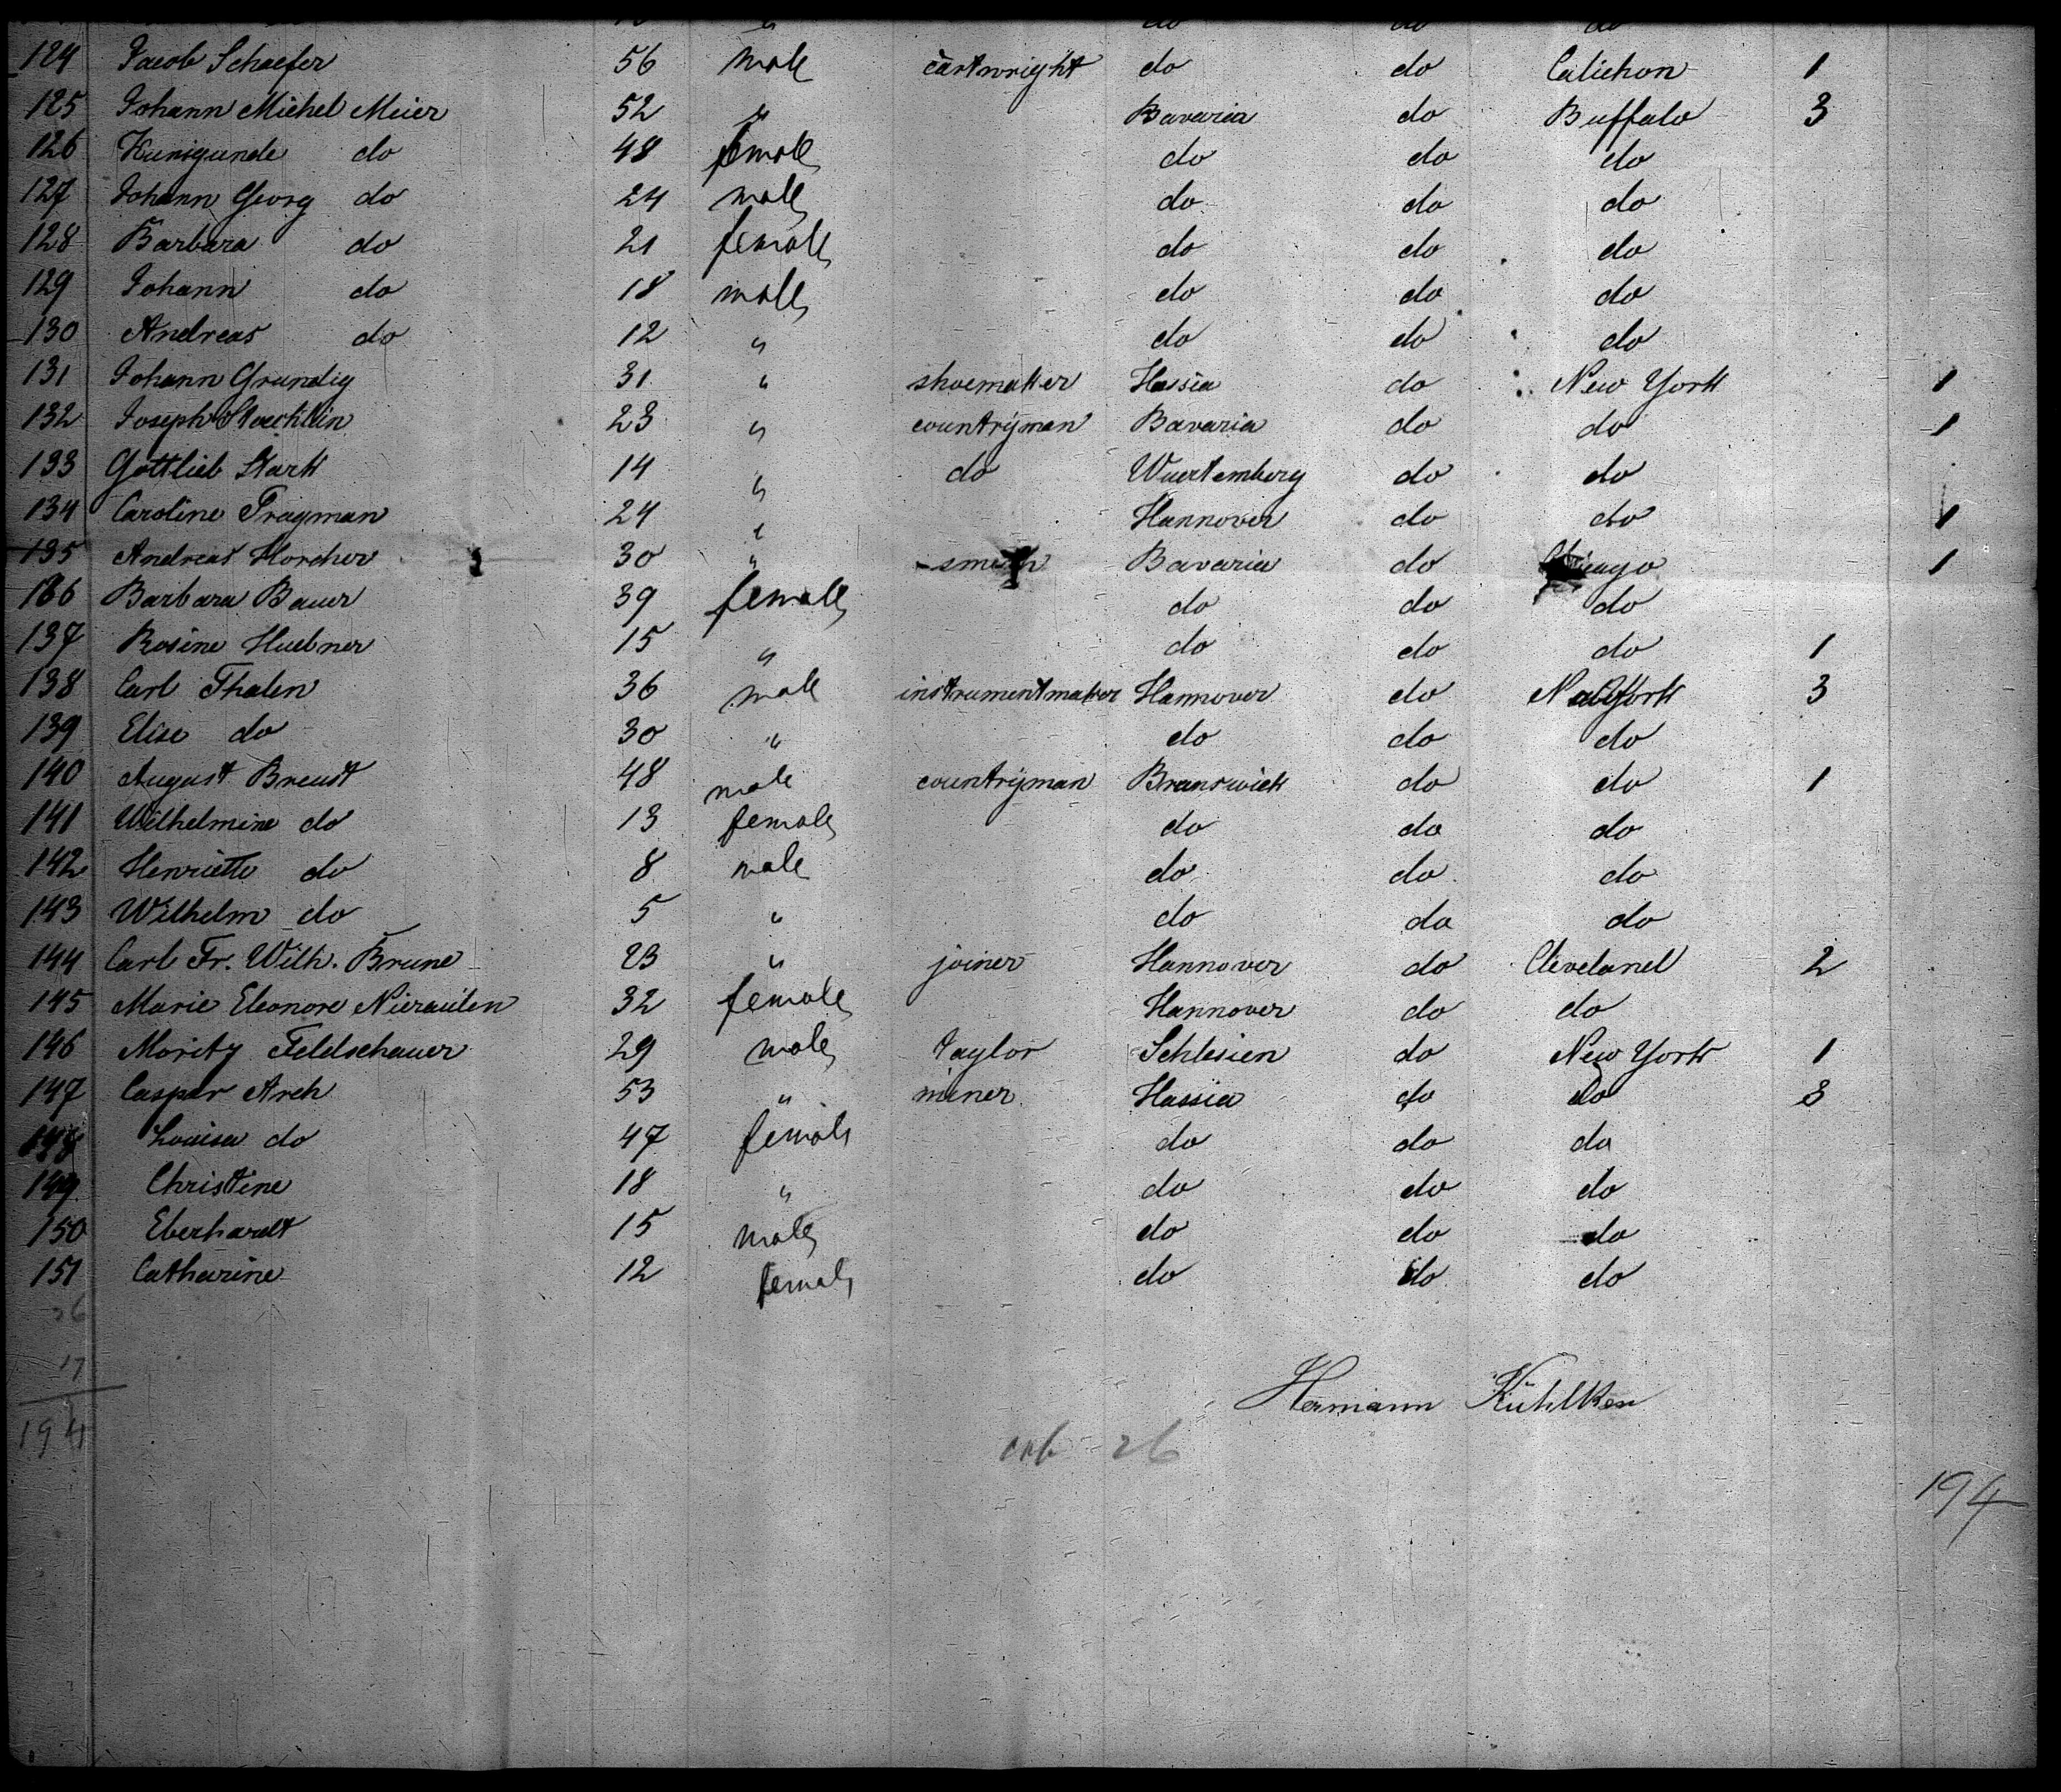 124 Jacob Schaefer 56 male cartwright do do Calichon 1
125 Johann Michel Meier 52 " Bavaria do Buffalo 3
126 Kunigunde do 48 female do do do
127 Johann Georg do 24 male do do do
128 Barbara do 21 female do do do
129 Johann do 18 male do do do
130 Andreas do 12 " do do do
131 Johann Grundig 31 " shoemaker Hassia do New York 1
132 Joseph 23 " countryman Bavaria do do 1
133 Gottlieb Stark 14 " do Wuertemberg do do
134 Caroline Tragman 24 " Hannover do do 1
135 Andreas Horcher 30 " smith Bavaria do Chicago 1
136 Barbara Bauer 39 female do do do
137 Rosine Huebner 15 " do do do 1
138 Carl Thalen 36 male instrumentmaker Hannover do New York 3
139 Elise do 30 " do do do
140 August Breust 48 male countryman Brunswick do do 1
141 Wilhelmine do 13 female do do do
142 Henriette do 8 male do do do
143 Wilhelm do 5 " do do do
144 Carl Fr. Wilh. Brune 23 " joiner Hannover do Cleveland 2
145 Marie Eleonore 32 female Hannover do do
146 Moritz Feldschauer 29 male taylor Schlesien do New York 1
147 Caspar Arch 53 " miner Hassia do do 3
148 Louisa do 47 female do do do
149 Christine 18 " do do do
150 Eberhardt 15 male do do do
151 Catharine 12 female do do do
26
17
194
Hermann Kühlken
26
194